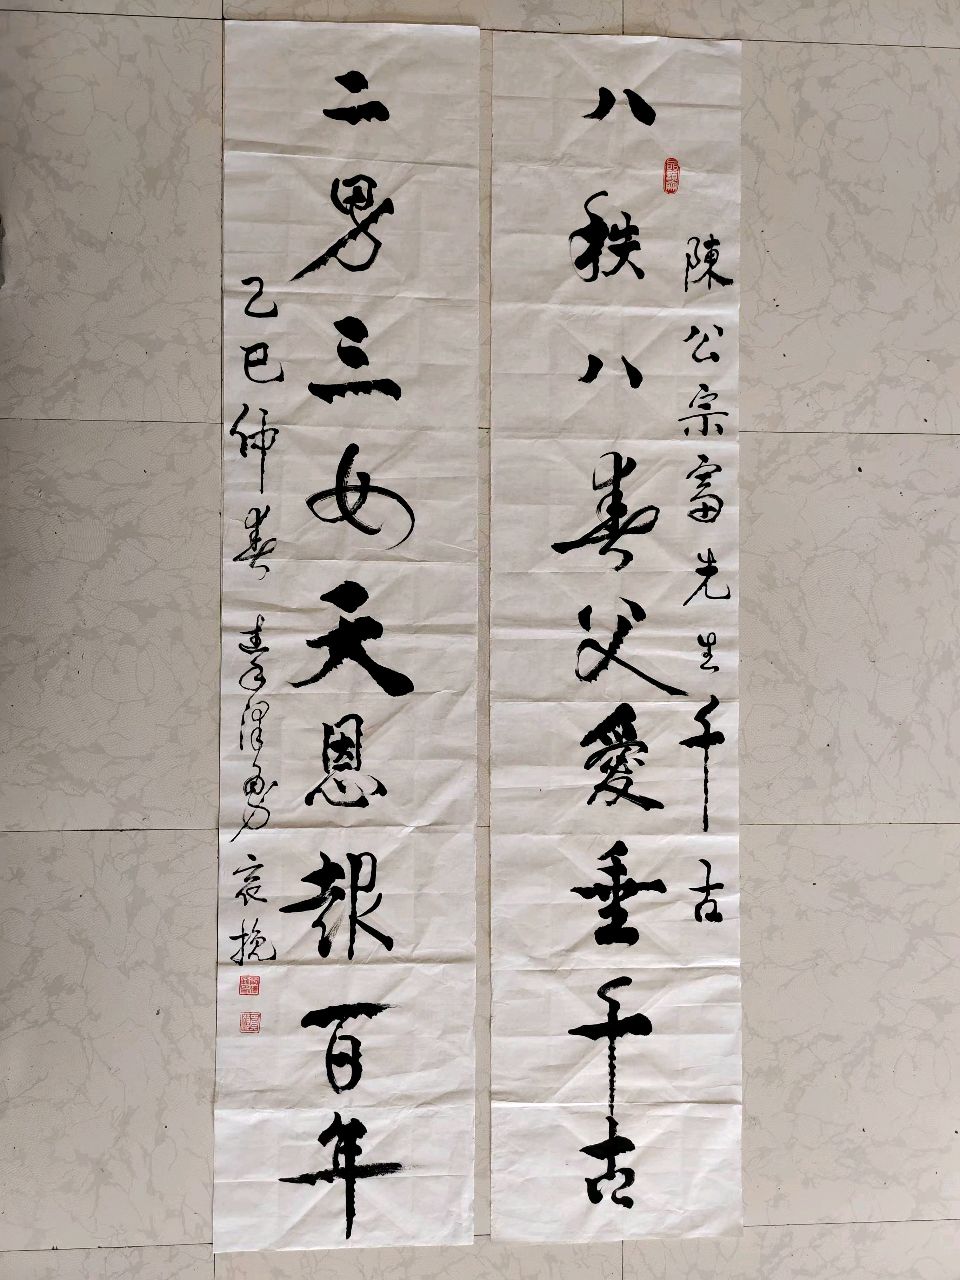 陳公宗富先生千古
八秩八壽父愛垂千古
二男三女天恩報百年
乙巳仲春 李澤勇 哀挽